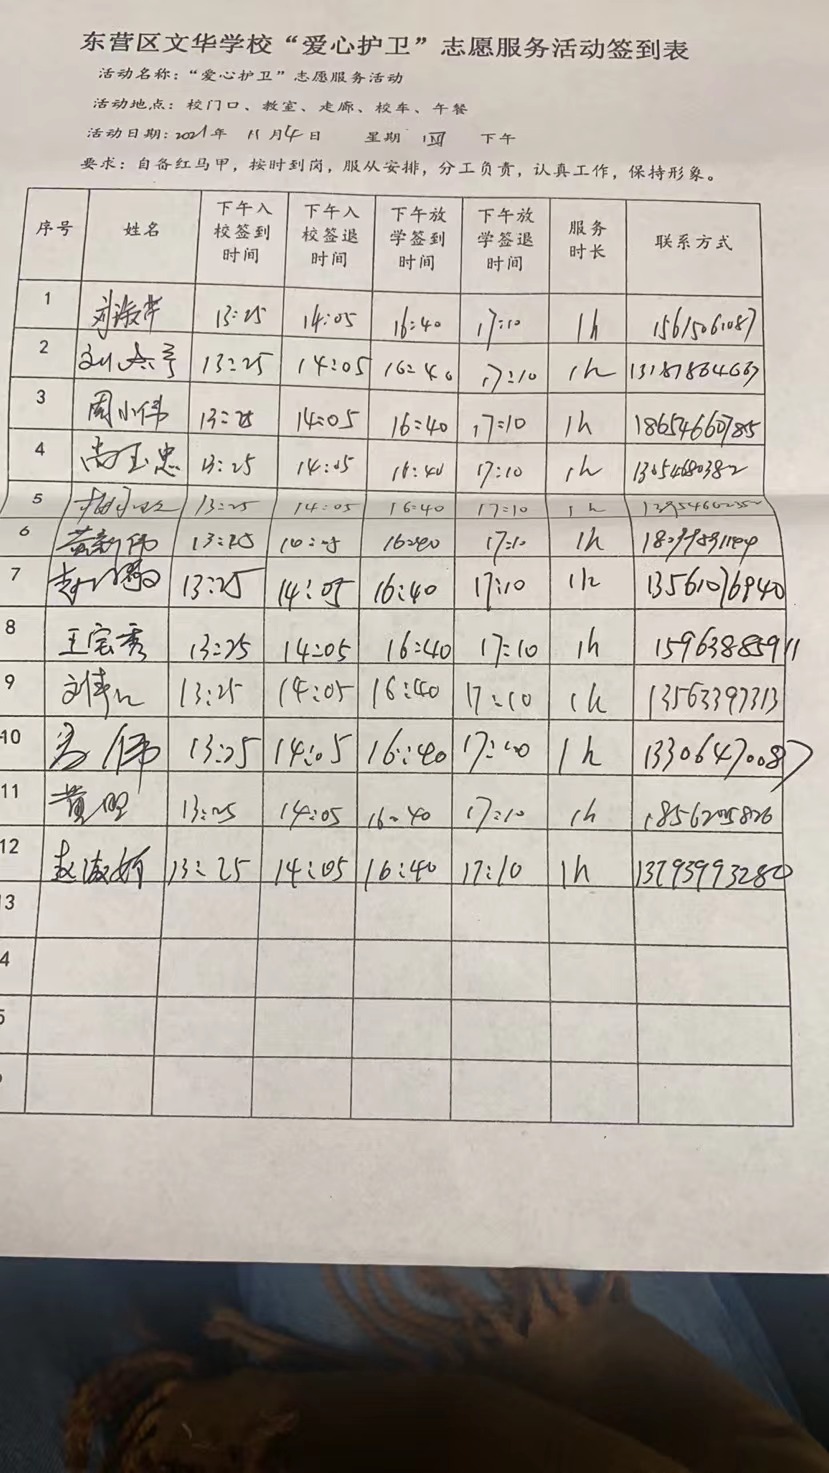 东营区文华学校“爱心护卫”志愿服务活动签到表
活动名称：“爱心护卫”志愿服务活动
活动地点：校门口、教室、走廊、校车、午餐
活动日期:2021年 11月4日 星期 四 下午
要求：自备红马甲，按时到岗，服从安排，分工负责，认真工作，保持形象。
序号 姓名 下午入校签到时间 下午入校签退时间 下午放学签到时间 下午放学签退时间 服务时长 联系方式
1 刘淑芹 13:25 14:05 16:40 17:10 1h 15615061087
2 13:25 14:05 16:40 17:10 1h
3 周小伟 13:25 14:05 16:40 17:10 1h 18654660785
4 尚玉忠 13:25 14:05 16:40 17:10 1h 13054680382
5 13:25 14:05 16:40 17:10 1h
6 黄新伟 13:25 16:40 17:10 1h
7 13:25 14:05 16:40 17:10 1h 13561076940
8 王宝秀 13:25 14:05 16:40 17:10 1h 15963885911
9 13:25 14:05 16:40 17:10 1h 13563397313
10 13:25 14:05 16:40 1h 13306470087
11 13:25 14:05 16:40 17:10 1h
12 赵淑娇 13:25 14:05 16:40 17:10 1h 13793993280